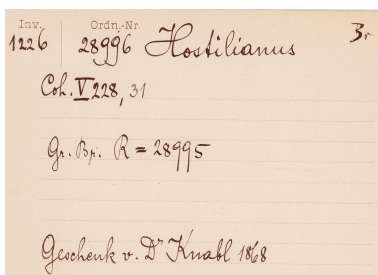 Inv. Ordn.-Nr. 3.-
1226 28996 Hostilianus
Coh. V 228, 31
Gr. Br. R = 28995
Geschenk v. Dr Knabl 1868